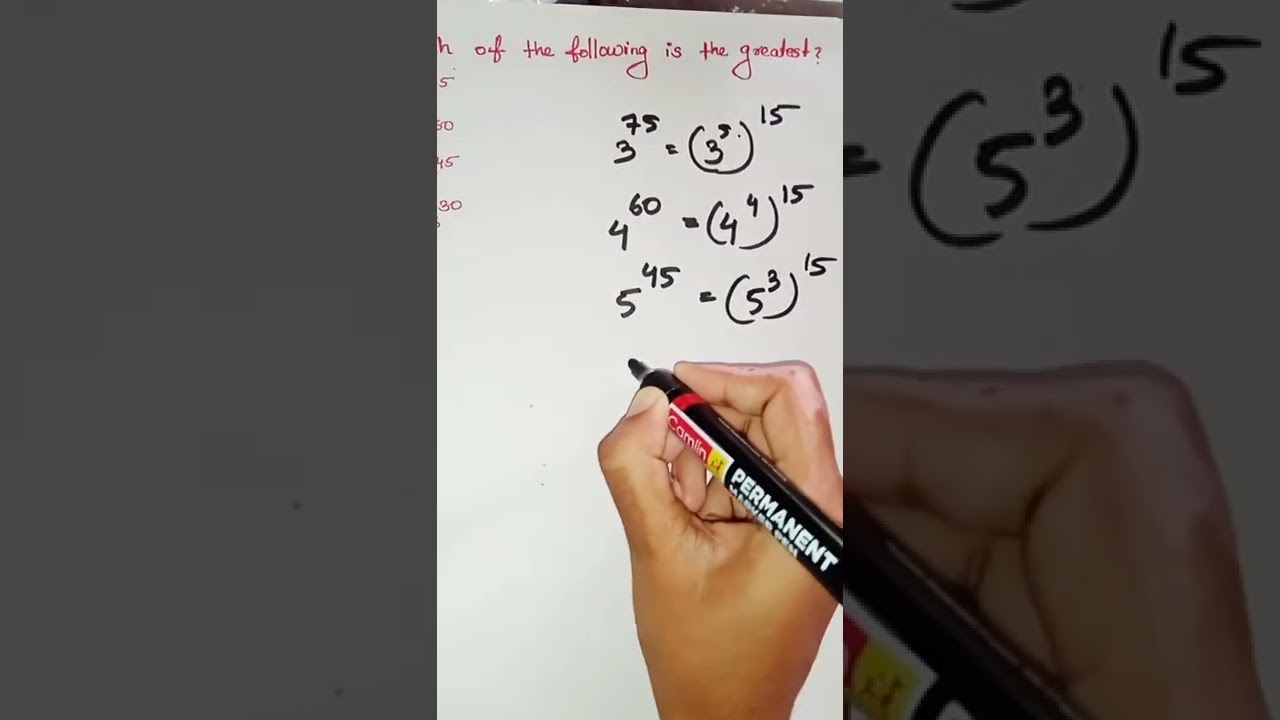 h of the following is the greatest?
5
3^75 = (3^5)^15
45
4^60 = (4^4)^15
30
5^45 = (5^3)^15
= (5^3)^15
Camlin
PERMANENT